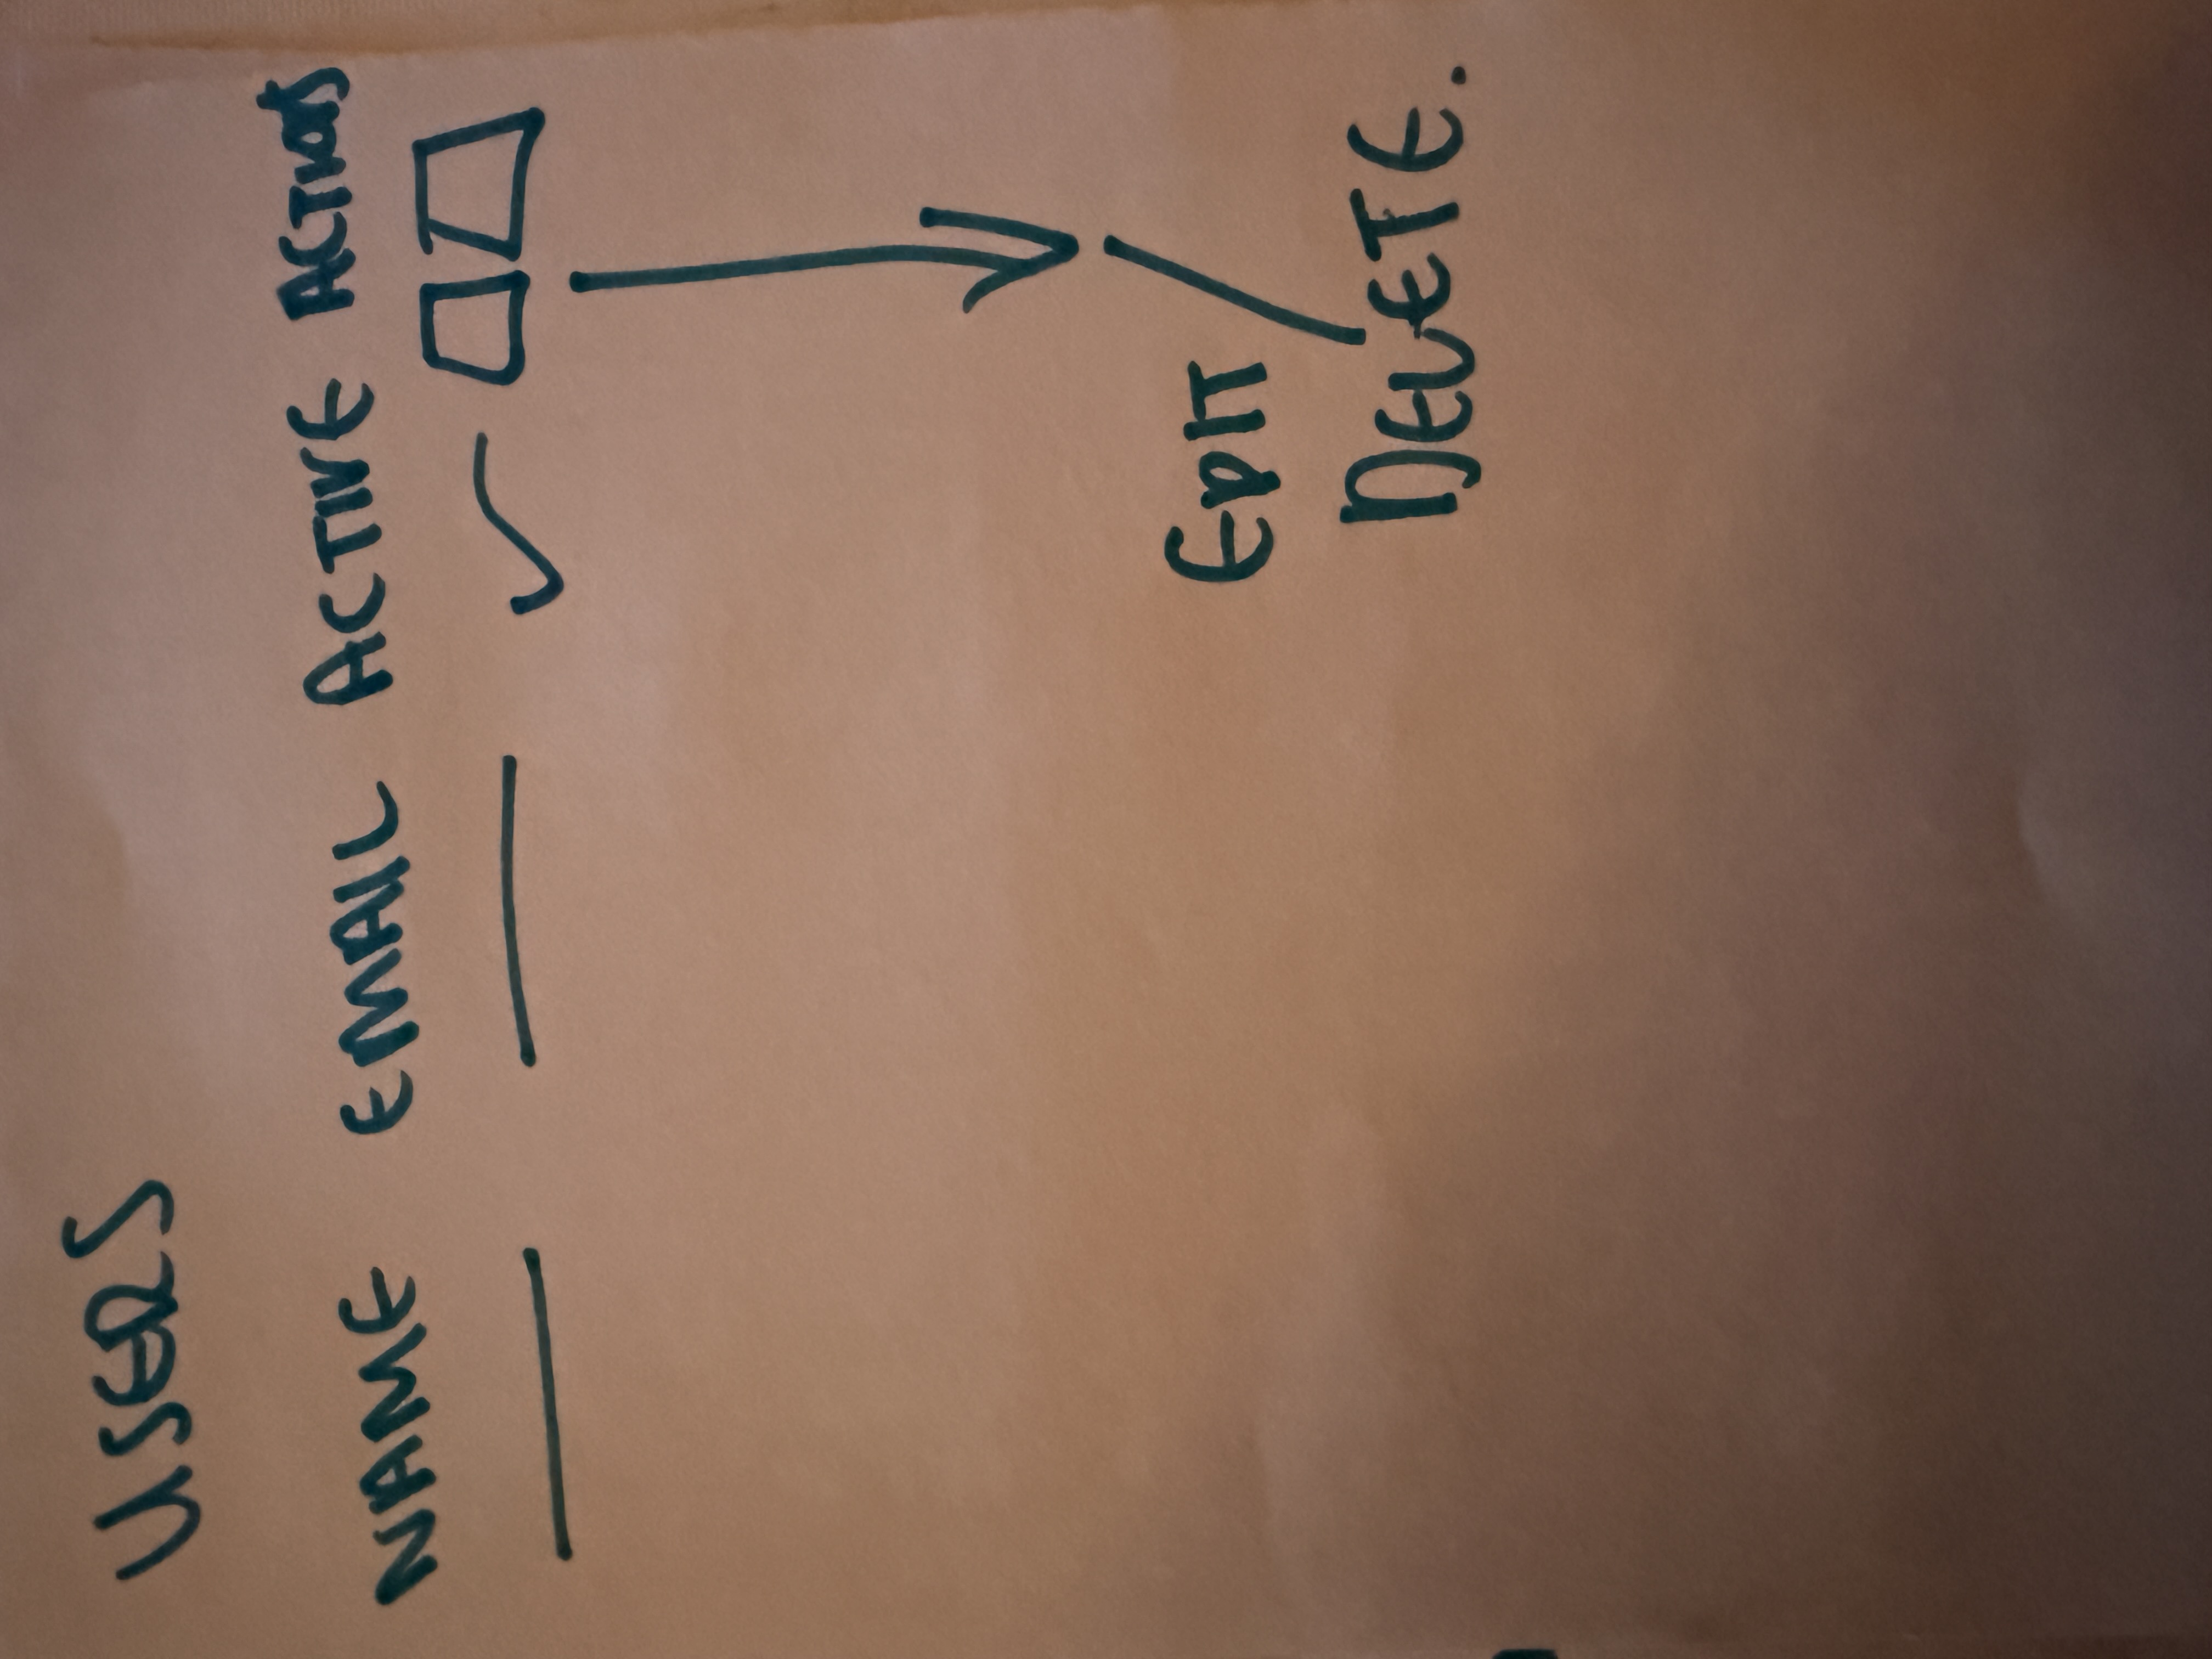 USERS
NAME EMAIL ACTIVE ACTIONS
EDIT /
DELETE.